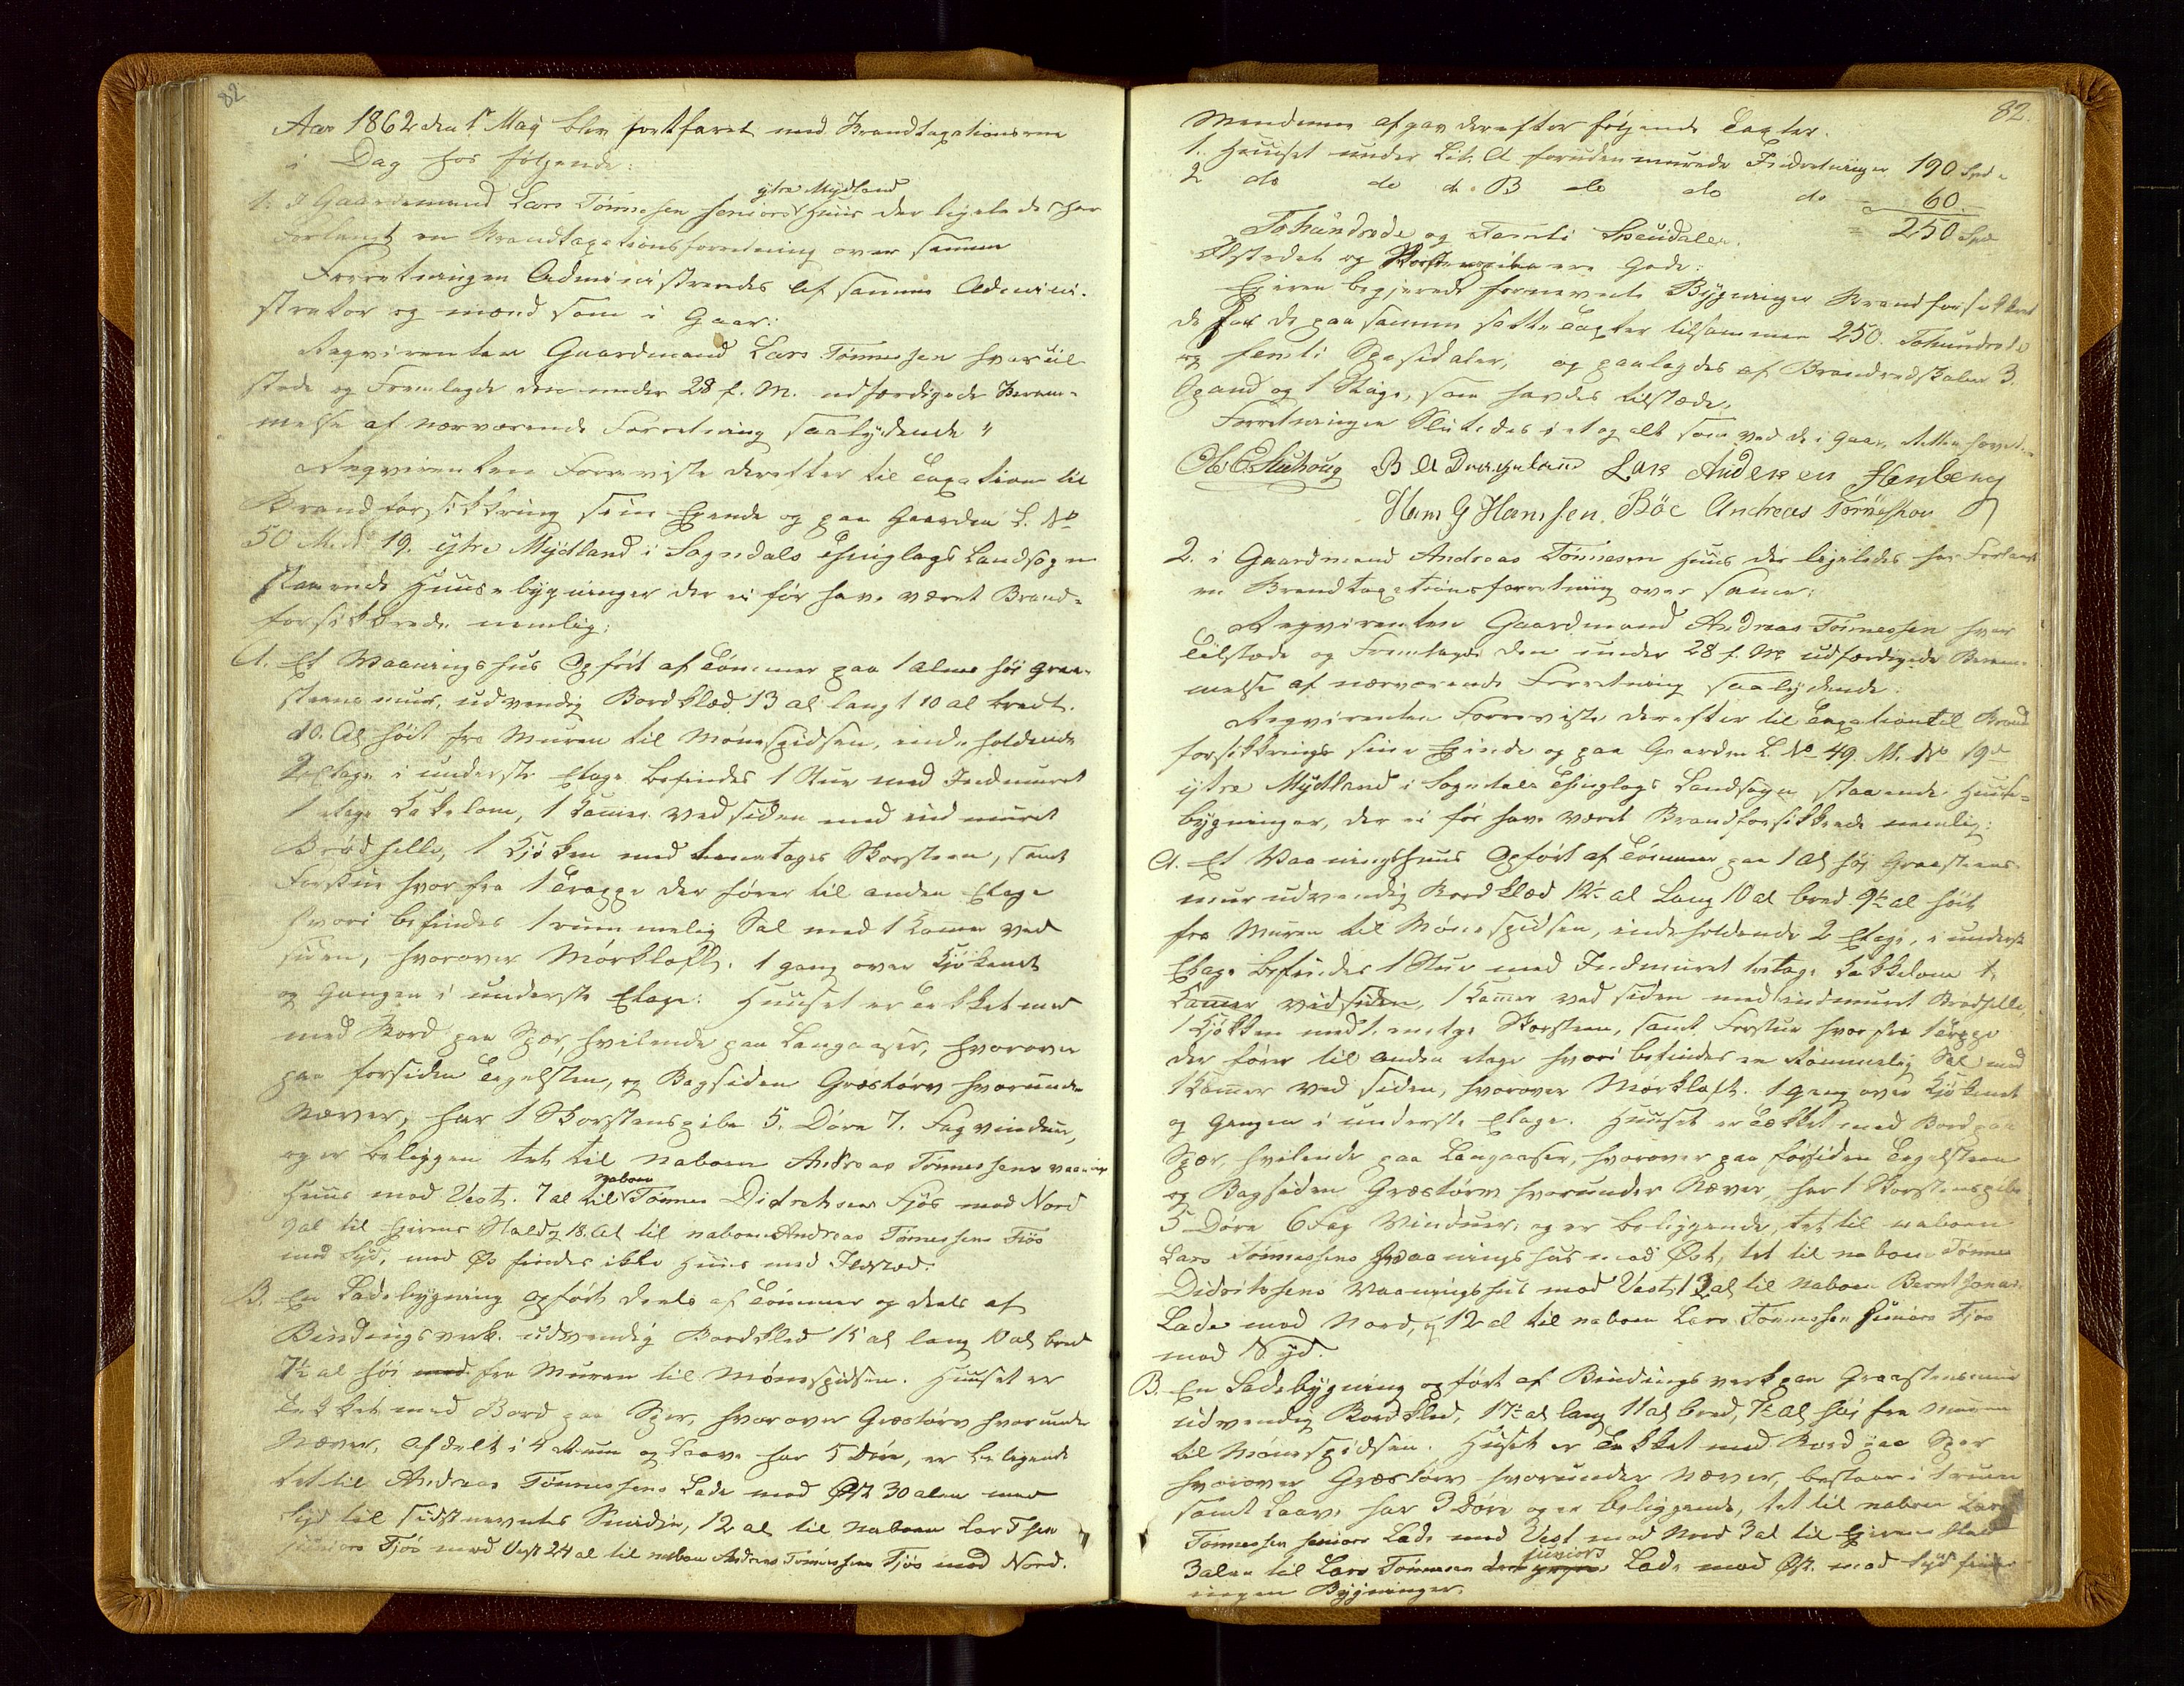 82
Aar 1862 den 1ste May blev fortfaret med Brandtaxationerne
i Dag hos følgende:
1. I Gaardmand Lars Tønnesen seniors ytre Mydland Huus der ligeledes har
forlangt en Brandtaxationsforretning over samme
Forretningen Administreredes af samme Admini-
strator og mænd som i Gaar:
Reqvirenten Gaardmand Lars Tønnessen hvar til
stede og Fremlagde den under 28 f. M. udfærdigede Beram-
melse af nærværende Forretning saalydende "
Reqvirenten Foreviste derefter til Taxation til
Brandforsikkring sine Eiende og paa Gaarden L. No
50 M. No 19. ytre Mydland i Sogndals Thinglags Landsogn
staaende Huusebygninger der ei før have været Brand-
forsikkrede nemlig:
A. Et Vaaningshus Opført af Tømmer paa 1 Alens høi Graa-
steens mur, udvendig Bordklæd 13 al langt 10 al bredt.
10. Al høit fra Muren til Mønespidsen, indeholdende
2 Etager i underste Etage befindes 1 Stue med Indmuret
1 etages Kakelovn, 1 Kammer ved siden med indmuret
Brødhelle, 1 Kjøkken med toetages Skorsteen, samt
Forstue hvorfra 1 Trappe der fører til anden Etage
hvori befindes 1 rummelig Sal med 1 Kammer ved
siden, hvorover Mørkloft. 1 gang over Kjøkenet
og Gangen i underste Etage: Huuset er Tækket med
med Bord paa Spær, hvilende paa Langaaser, hvorover
paa forsiden Tegelsten, og Bagsiden Græstørv hvorunder
Næver, har 1 Skorstenspibe 5. Døre 7. Fag vinduer,
og er beliggen tet til Naboen Andreas Tønnessens vaanings
Huus mod Vest. 7 al til naboen Tønnes Didriksens Fjøs mod Nord
7 al til Eierens Stald og 18. Al til naboen Andreas Tønnessens Fjøs
mod Syd, mod Øst findes ikke Huus med Ildsted.
B. En Ladebygning opført deels af Tømmer og deels af
Bindingsverk. udvendig Bordklæd 15 al lang 10 al bred
7½ al høi med fra Muren til Mønespidsen. Huuset er
Tækket med Bord paa Spær, hvorover Græstørv hvorunder
Næver, afdelt i 4 Rum og Laave har 5 Døre, er beligende
tet til Andreas Tønnessens Lade mod Øst 30 alen mod
Syd til sidstnevntes Smidie, 12 al til Naboen Lars T sen
juniors Fjøs mod Vest 24 al til naboen Andreas Tønnessens Fjøs mod Nord.
82.
Mændene afgav derefter følgende Taxter.
1. Huuset under Lit. A foruden murede Indretninger 190 Spd.
2 do do do B do do do - 60.
= 250 Spd
Tohundrede og Femti Speciedaler.
Ildstedet og Skorstenspiben ere Gode:
Eieren begjerede fornevnte Bygninger Brandforsikkret
de for de paa samme satte Taxter tilsammen 250. Tohundrede
og femti Spesidaler, og paalagdes af Brandredskaber 3.
Spand og 1 Stige, som havdes tilstæde.
Forretningen Sluttedes i et og alt som ved de i Gaar Aften hævede.
B A Drageland Lars Andersen Stenberg
Hans G Hansen. Böe Andreas Tørneskov
2. i Gaardmand Andreas Tønnesen Huus der ligeledes har Forlangt
en Brandtaxationsforretning over samme:
Reqvirenten Gaardmand Andreas Tønnessen hvar
Tilstede og Fremlagde den under 28 f. M. udfærdigede Beram-
melse af nærværende Forretning saalydende:
Reqvirenten Foreviste derefter til Taxation til Brand
forsikkring sine Eiende og paa Gaarden L. No 49. M. No 19de
ytre Mydland i Sogndals Thinglags Landsogn staaende Huuse-
bygninger, der ei før have været Brandforsikkrede nemlig:
A. Et Vaaningshuus Opført af Tømmer paa 1 Al høi Graasteens
mur udvendig Bordklæd 12½ al Lang 10 al bred 9½ al høit
fra Muren til Mønespidsen, indeholdende 2 Etager, i underste
Etage Befindes 1 Stue med Indmuret 1 etages Kakkelovn 1.
Kammer ved siden, 1 Kammer ved siden med indmuret Brødhelle,
1 Kjøkken med 1. enetages Skorsteen, samt Forstue hvorfra 1 Trappe
der fører til anden etage hvori befindes en Rummelig Sal med
1 Kammer ved siden, hvorover Mørkloft. 1 gang over Kjøkenet
og Gangen i underste Etage. Huuset er Tækket med Bord paa
Spær, hvilende paa Langaaser, hvorover paa forsiden Tegelsteen
og Bagsiden Græstørv hvorunder Næver, har 1 Skorstenspibe
5 Døre 6 Fag Vinduer, og er beliggende, tet til naboen
Lars Tønnessens Hvaaningshus mod Øst, tet til naboen Tønnes
Didriksens Vaaningshus mod Vest, 13 al til Naboen Bernt
Lade mod Nord, og 12 al til naboen Lars Tønnessen juniors Fjøs
mod Syd.
B. En Ladebygning opført af Bindingsverk paa Graasteensmur
udvendig Bordklæd, 17½ al lang 11 al bred, 7½ al høi fra Muren
til Mønespidsen. Huset er Tækket med Bord paa Spær
hvorover Græstørv hvorunder Næver, bestaar i 1 rum
samt Laave, har 3 Døre og er beliggende, tet til naboen Lars
Tønnessen seniors Lade mod Vest mod Nord 3 al til Eierens Stald
3 alen til Lars Tønnesen juniors Lade mod Øst. mod Syd findes
ingen Bygninger.